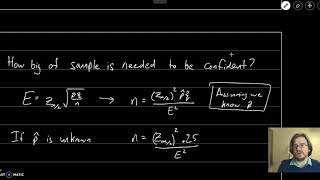 How big of sample is needed to be confident?
E = z_{α/2} √(p̂q̂/n) → n = (z_{α/2})² p̂q̂ / E²
Assuming we
know p̂
If p̂ is unknown n = (z_{α/2})² .25 / E²